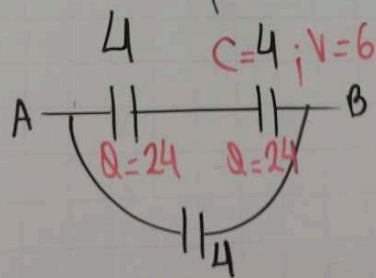 4 C=4 ; V=6
A B
Q=24 Q=24
4